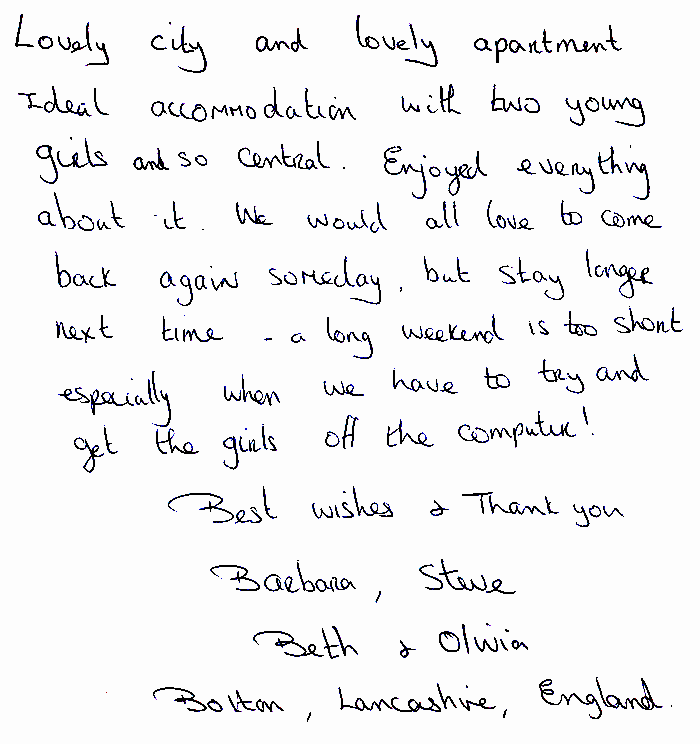 Lovely city and lovely apartment
Ideal accommodation with two young
girls and so central. Enjoyed everything
about it. We would all love to come
back again someday, but stay longer
next time - a long weekend is too short
especially when we have to try and
get the girls off the computer!
Best wishes & Thank you
Barbara, Steve
Beth & Olivia
Bolton, Lancashire, England.